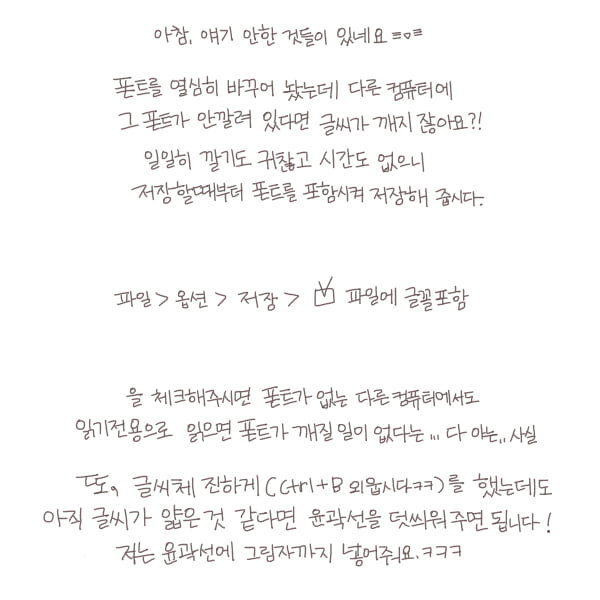 아참, 얘기 안한 것들이 있네요 =ㅇ=
폰트를 열심히 바꾸어 놨는데 다른 컴퓨터에
그 폰트가 안깔려 있다면 글씨가 깨지 잖아요?!
일일히 깔기도 귀찮고 시간도 없으니
저장할때부터 폰트를 포함시켜 저장해 줍시다.
파일 > 옵션 > 저장 > ☑ 파일에 글꼴포함
을 체크해주시면 폰트가 없는 다른컴퓨터에서도
읽기전용으로 읽으면 폰트가 깨질 일이 없다는 ... 다 아는,, 사실
또, 글씨체 진하게 (Ctrl+B 외웁시다ㅋㅋ)를 했는데도
아직 글씨가 얇은것 같다면 윤곽선을 덧씌워주면 됩니다!
저는 윤곽선에 그림자까지 넣어줘요.ㅋㅋㅋ